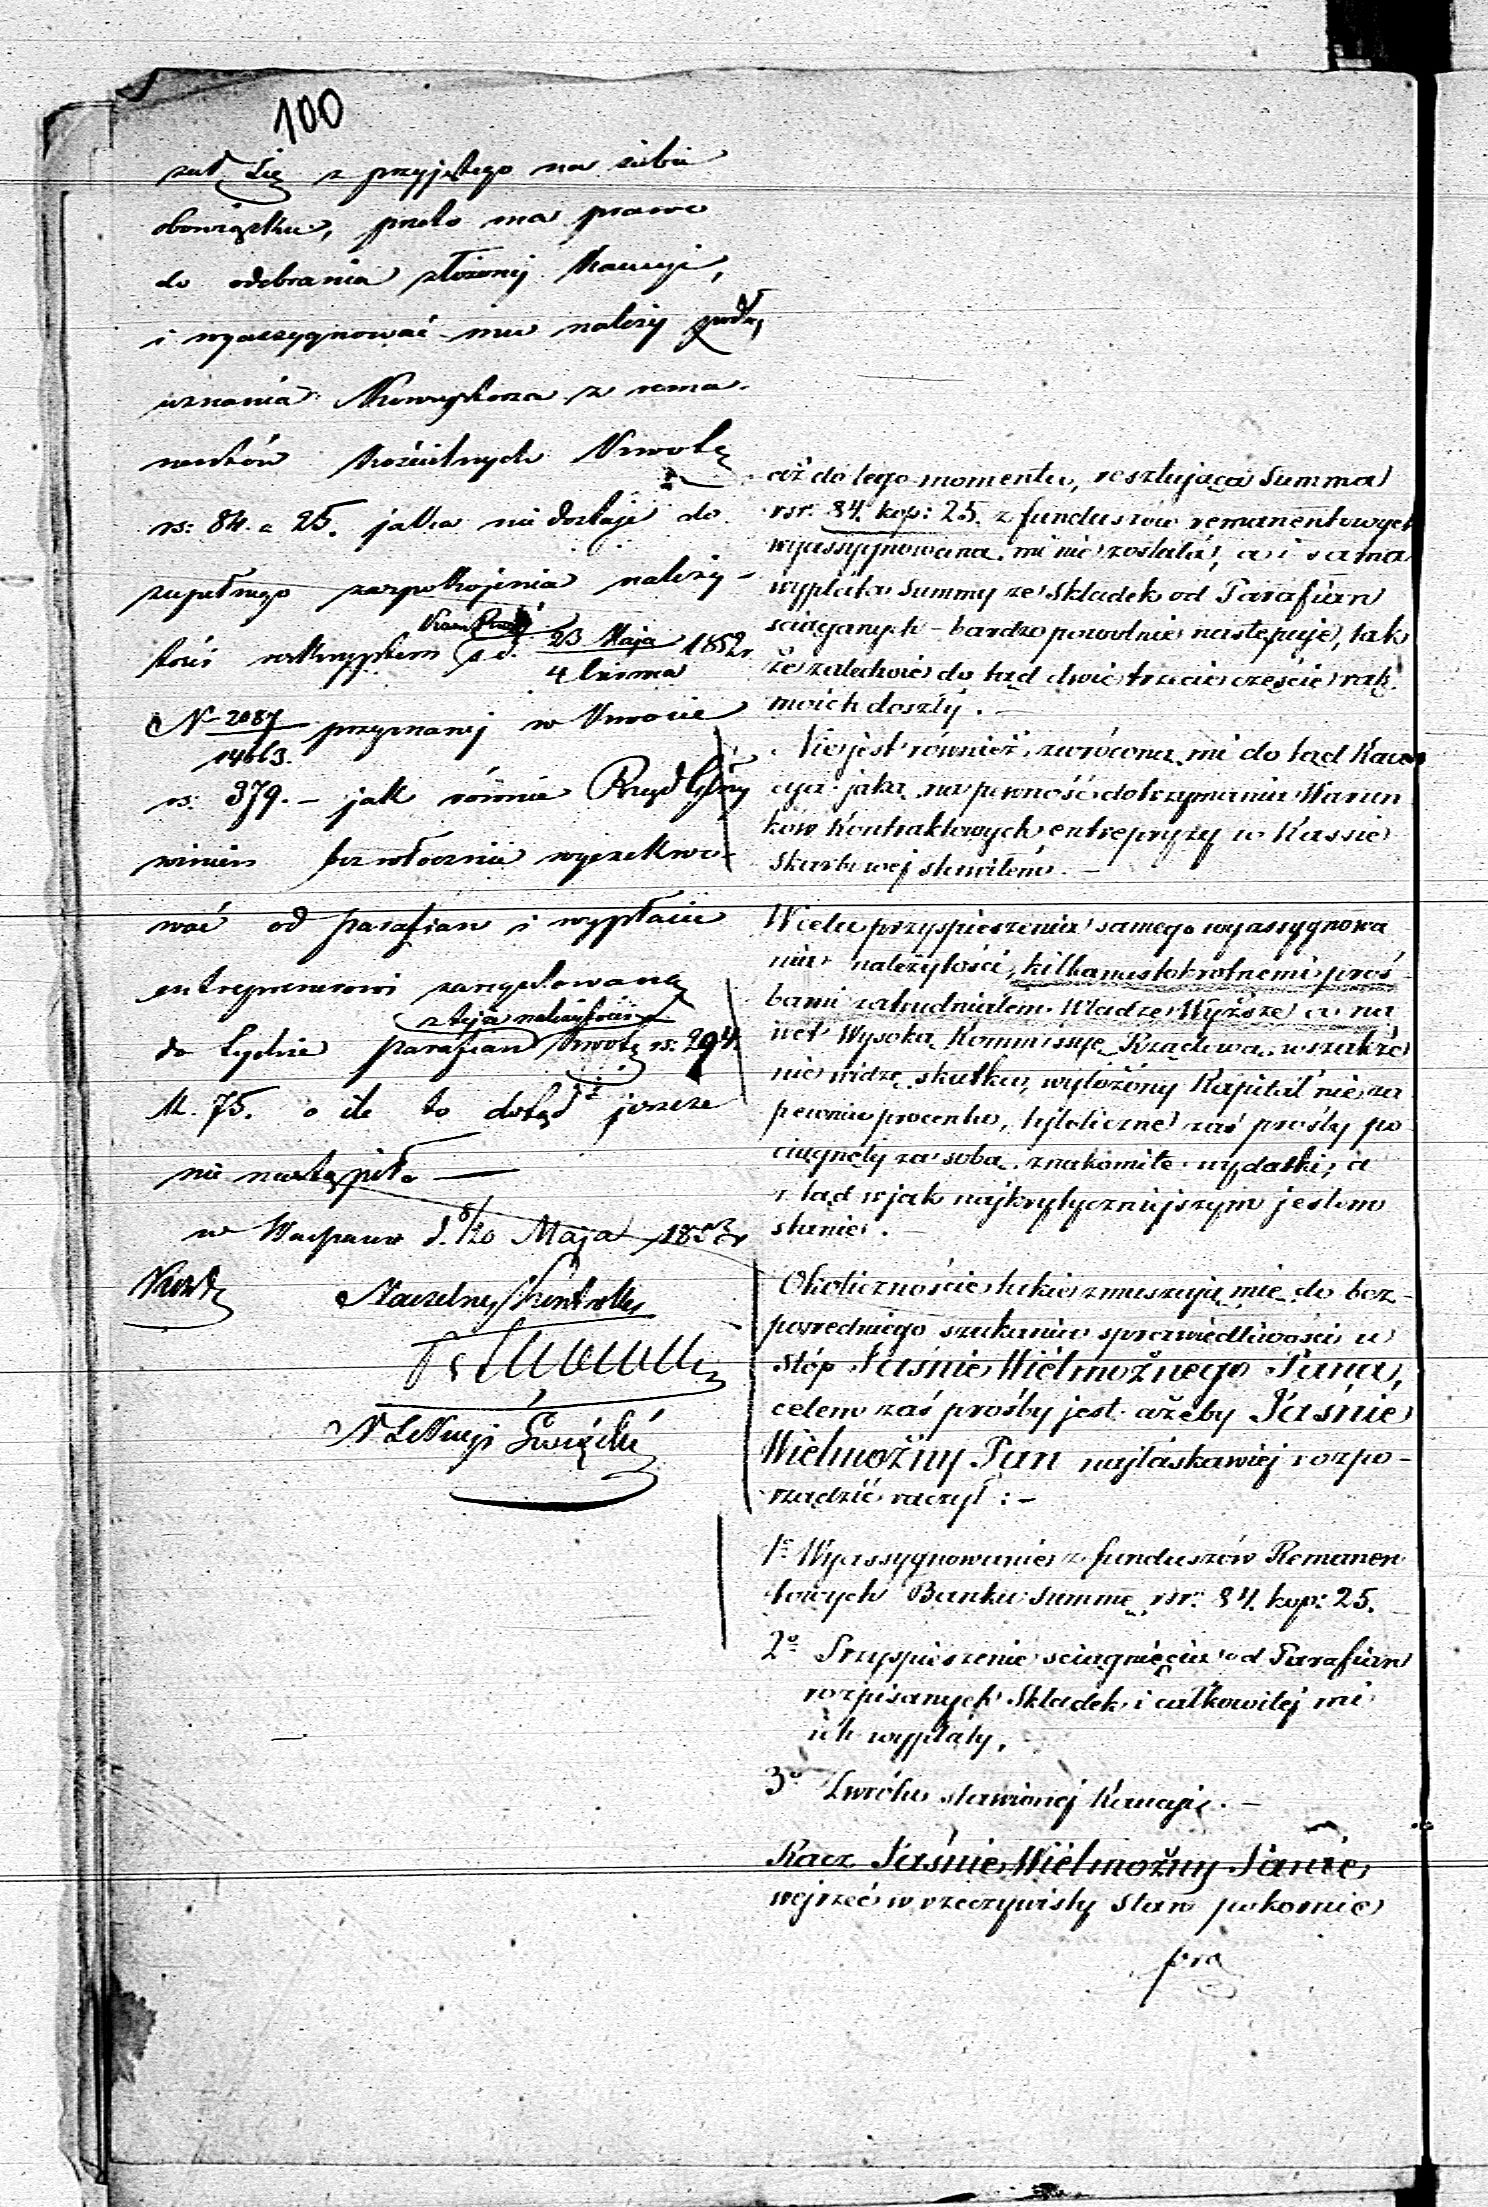 100
zał się z przyjętego na siebie
obowiązku, przeto ma prawo
do odebrania złożonej Kaucyi,
i wyassygnować mu należy podług
uznania Nowego z rema-
nentów Kościelnych Kwotę
rs: 84. k 25. jaka nie dostaje do
zupełnego zaspokojenia należy-
tości reskryptem z d. 23 Maja 1852 r.
4 Czerwca
N 2087 przyznanej w Kwocie
14663.
rs: 379. – jak również Rząd Gbny
winien bezwłocznie wyexekwo-
wać od parafian i wypłacić
entreprenerowi zaregulowaną
z tej należności
do tychże parafian Kwotę rs: 294.
k. 75. o ile to dotąd jeszcze
nie nastąpiło —
w Warszawie d. 8/20 Maja 1853 r
Naczelny Kontroler
N. Sekcyi
aż do tego momentu, resztująca Summa
rsr. 84. kop: 25. z funduszów remanentowych
wyassygnowana mi nie została, a i sama
wypłata Summy ze Składek od Parafian
sciąganych – bardzo powolnie następuje, tak
że zaledwie do tąd dwie trzecie części rąk
moich doszły. —
Nie jest również zwrócona mi do tąd Kau
cya jaką na pewność dotrzymania Warun
ków Kontraktowych entrepryzy w Kassie
Skarbowej stawiłem. —
W celu przyspieszenia samego wyassygnowa
nia należytości, kilkanastokrotnemi proś-
bami zatrudniałem Władze Wyższe a na
wet Wysoką Kommissyę Rządową, wszakże
nie widzę skutku, wyłożony Kapitał nie za
pewnia procentu, tyloliczne zaś prośby po
ciągnęły za sobą znakomite wydatki, a
z tąd w jak najkrytyczniejszym jestem
stanie. —
Okoliczności takie zmuszają mię do bez-
pośredniego szukania sprawiedliwości u
stóp Jaśnie Wielmożnego Pana,
celem zaś prośby jest ażeby Jaśnie
Wielmożny Pan najłaskawiej rozpo-
rządzić raczył: –
1º Wyassygnowanie z funduszów Remanen
towych Banku Summę rsr: 84. kop: 25.
2º Przyspieszenie sciągnięcia od Parafian
rozpisanych Składek i całkowitej mi
ich wypłaty.
3º Zwrotu stawionej Kaucyi. –
Racz Jaśnie Wielmożny Panie
wejrzeć w rzeczywisty stan pokornie
pro